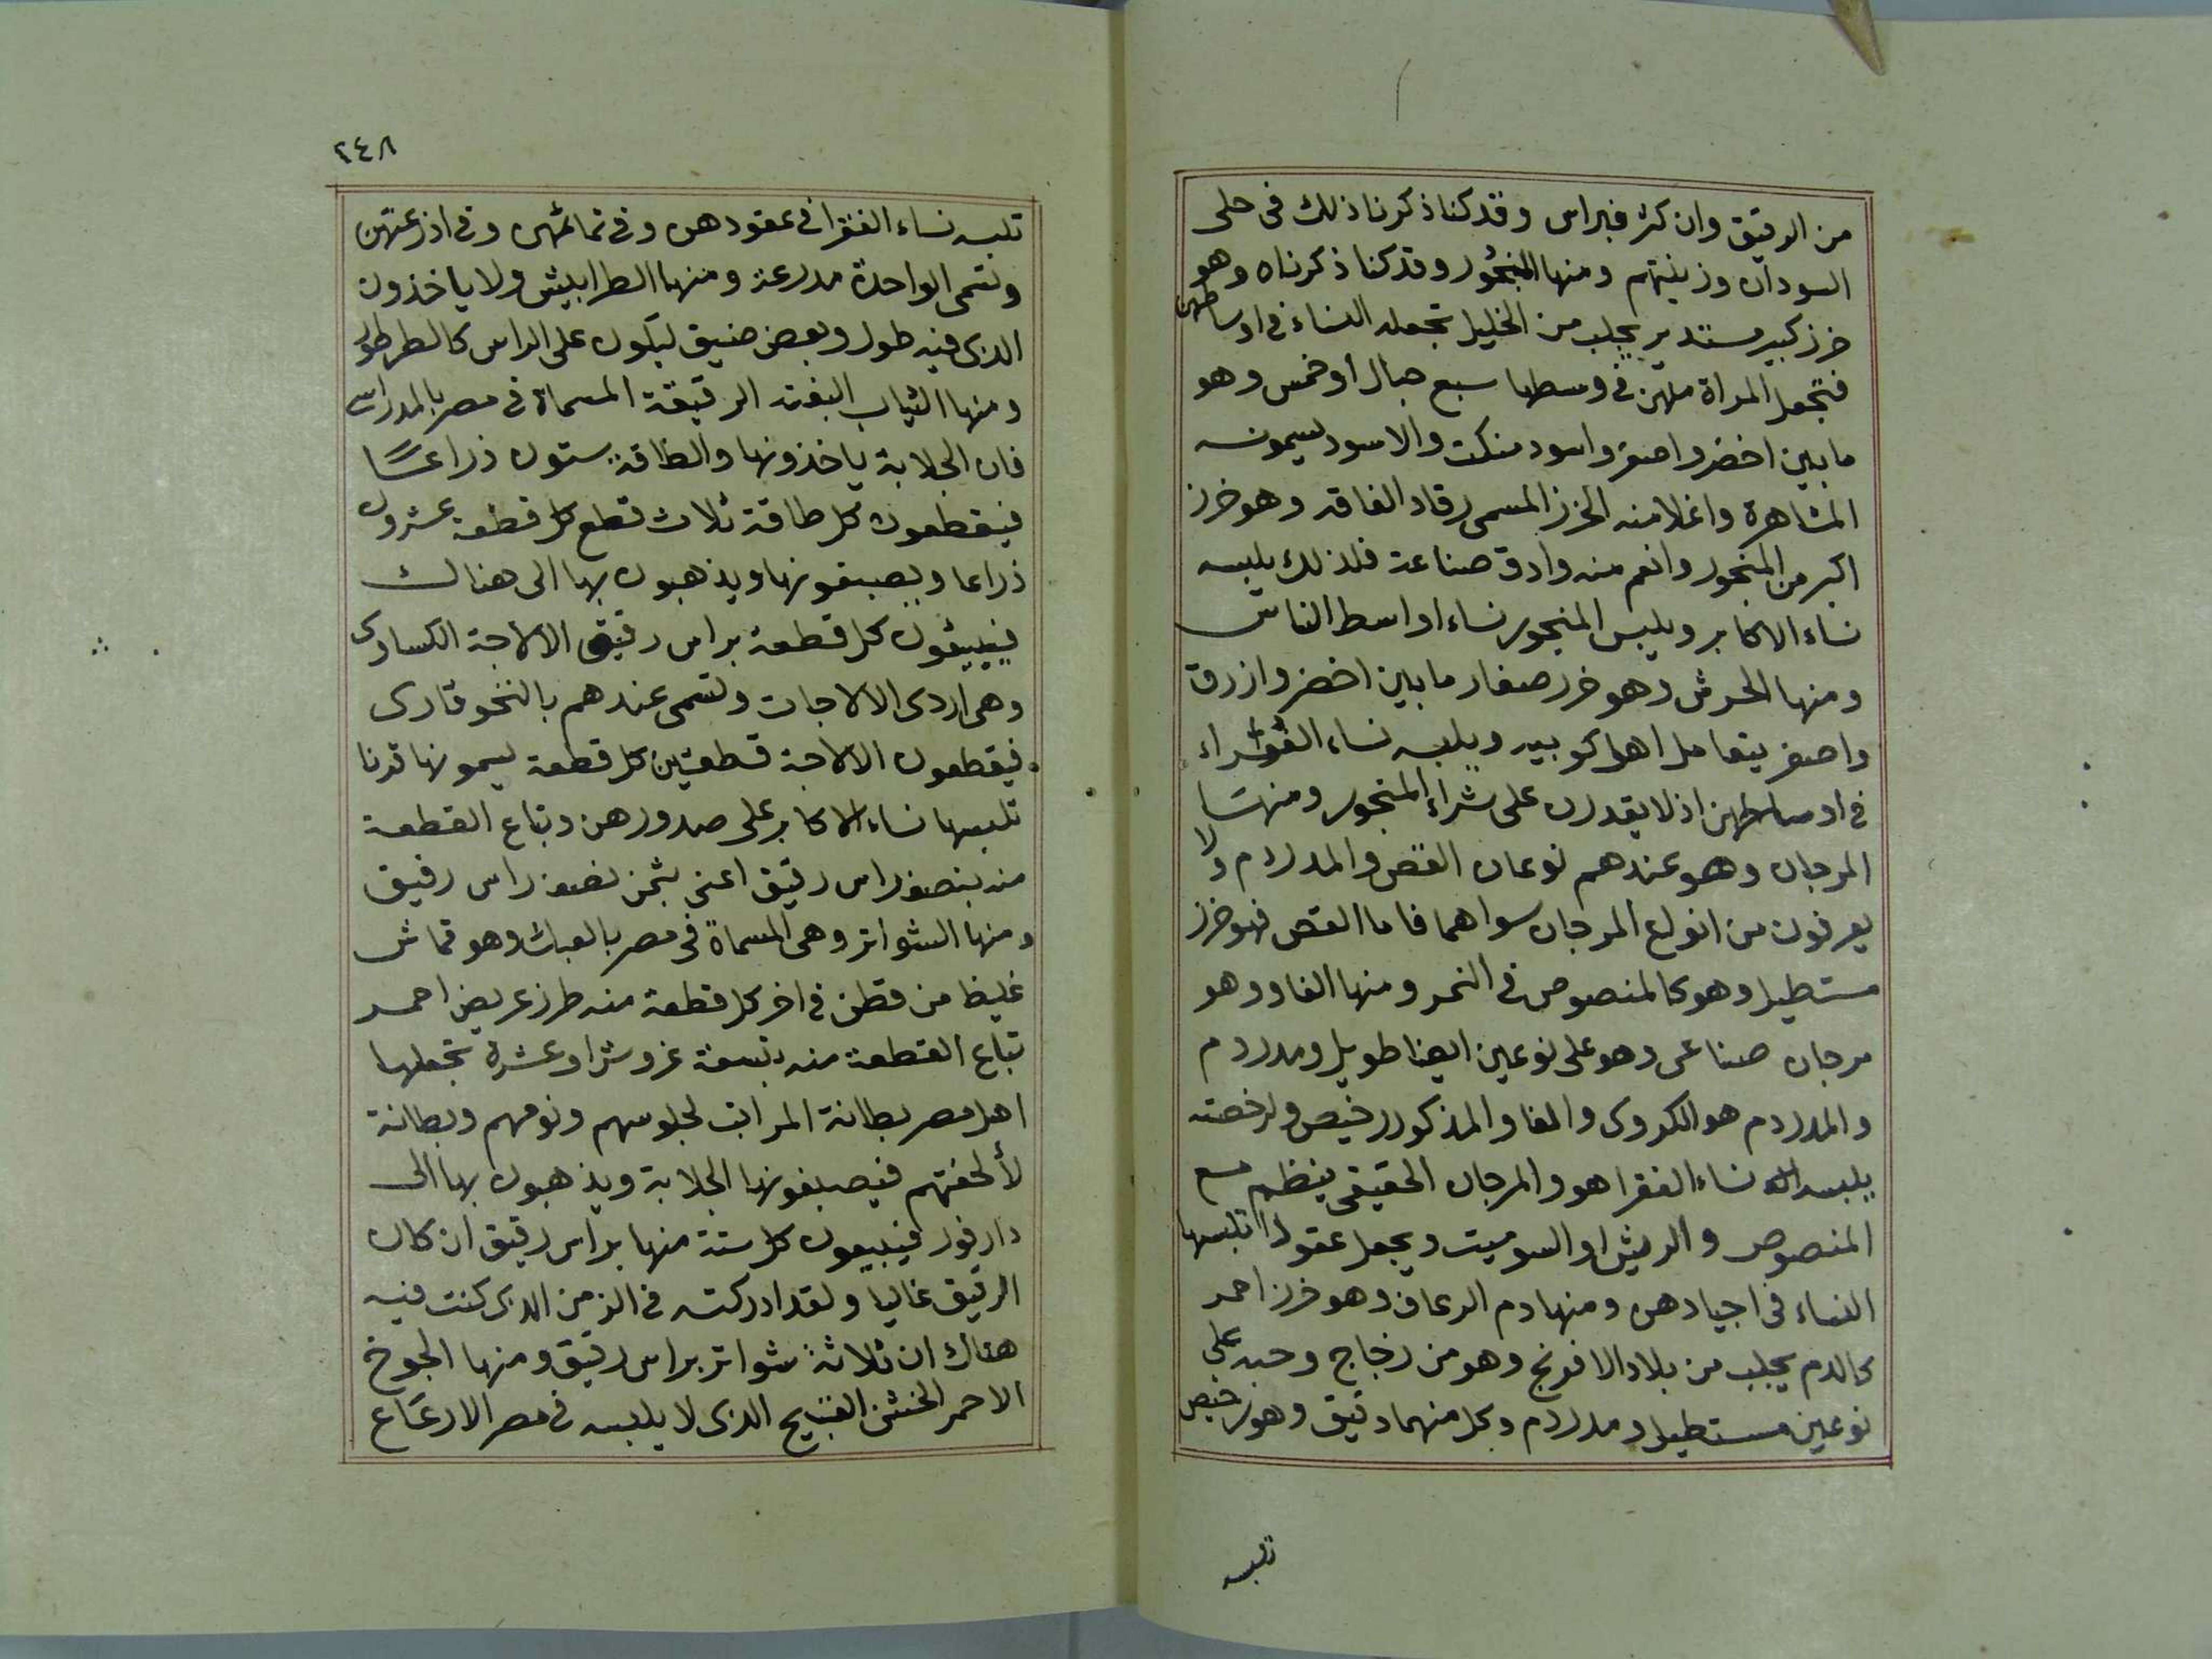 من الرقيق وان كثر فبراس وقد كنا ذكرنا ذلك فى حلى
السودان وزينتهم ومنها المنجور وقد كنا ذكرناه وهو
خرز كبير مستدير يجلب من الخليل تجعله النساء فى اوساطهن
فتجعل المراة منهن فى وسطها سبع حبال او خمس وهو
ما بين اخضر واصفر واسود منكت والاسود يسمونه
المشاهرة واغلا منه الخرز المسمى رقاد الفاقه وهو خرز
اكبر من المنجور وانعم منه وادق صناعة فلذلك يلبسه
نساء الاكابر ويلبس المنجور نساء اواسط الناس
ومنها الحرش وهو خرز صغار ما بين اخضر وازرق
واصفر يتعامل اهل كوبيه ويلبسه نساء الفقراء
فى اوساطهن اذ لا يقدرن على شراء المنجور ومنها
المرجان وهو عندهم نوعان القص والمدردم ولا
يعرفون من انواع المرجان سواهما فاما القص فهو خرز
مستطيل وهو كالمنصوص فى النحر ومنها الفاو وهو
مرجان صناعى وهو على نوعين ايضا طويل ومدردم
والمدردم هو الكروى والفاو المذكور رخيص ولرخصته
يلبسه نساء الفقرا هو والمرجان الحقيقى ينظم مع
المنصوص والريش او السوميت ويجعل عقودا تلبسها
النساء فى اجيادهن ومنها دم الرعاف وهو خرز احمر
كالدم يجلب من بلاد الافرنج وهو من زجاج وحبه على
نوعين مستطيل ومدردم وكل منهما دقيق وهو رخيص
تلبسه
٢٤٨
تلبسه نساء الفقرا فى عقودهن وفى تمائمهن وفى اذرعتهن
وتسمى الواحدة مدرعة ومنها الطرابيش ولا ياخذون
الذى فيه طول وبعض ضيق ليكون على الراس كالطرطور
ومنها الثياب البفته الرقيقة المسماة فى مصر بالمدراسى
فان الجلابة ياخذونها والطاقة ستون ذراعا
فيقطعون كل طاقة ثلاث قطع كل قطعة عشرون
ذراعا ويصبغونها ويذهبون بها الى هناك
فيبيعون كل قطعة براس رقيق الالاجة الكساوى
وهى اردى الالاجات وتسمى عندهم بالنخوقارى
فيقطعون الالاجة قطعتين كل قطعة يسمونها قرنا
تلبسها نساء الاكابر على صدورهن وتباع القطعة
منه بنصف راس رقيق اعنى بثمن نصف راس رقيق
ومنها الشواتر وهى المسماة فى مصر بالعبك وهو قماش
غليظ من قطن فى اخر كل قطعة منه طرز عريض احمر
تباع القطعة منه بتسعة غروش او عشرة تجعلها
اهل مصر بطانة المراتب لجلوسهم ونومهم وبطانة
لألحفتهم فيصبغونها الجلابة ويذهبون بها الى
دارفور فيبيعون كل ستة منها براس رقيق ان كان
الرقيق غاليا ولقد ادركته فى الزمن الذى كنت فيه
هناك ان ثلاثة شواتر براس رقيق ومنها الجوخ
الاحمر الخشن القبيح الذى لا يلبسه فى مصر الا رعاع